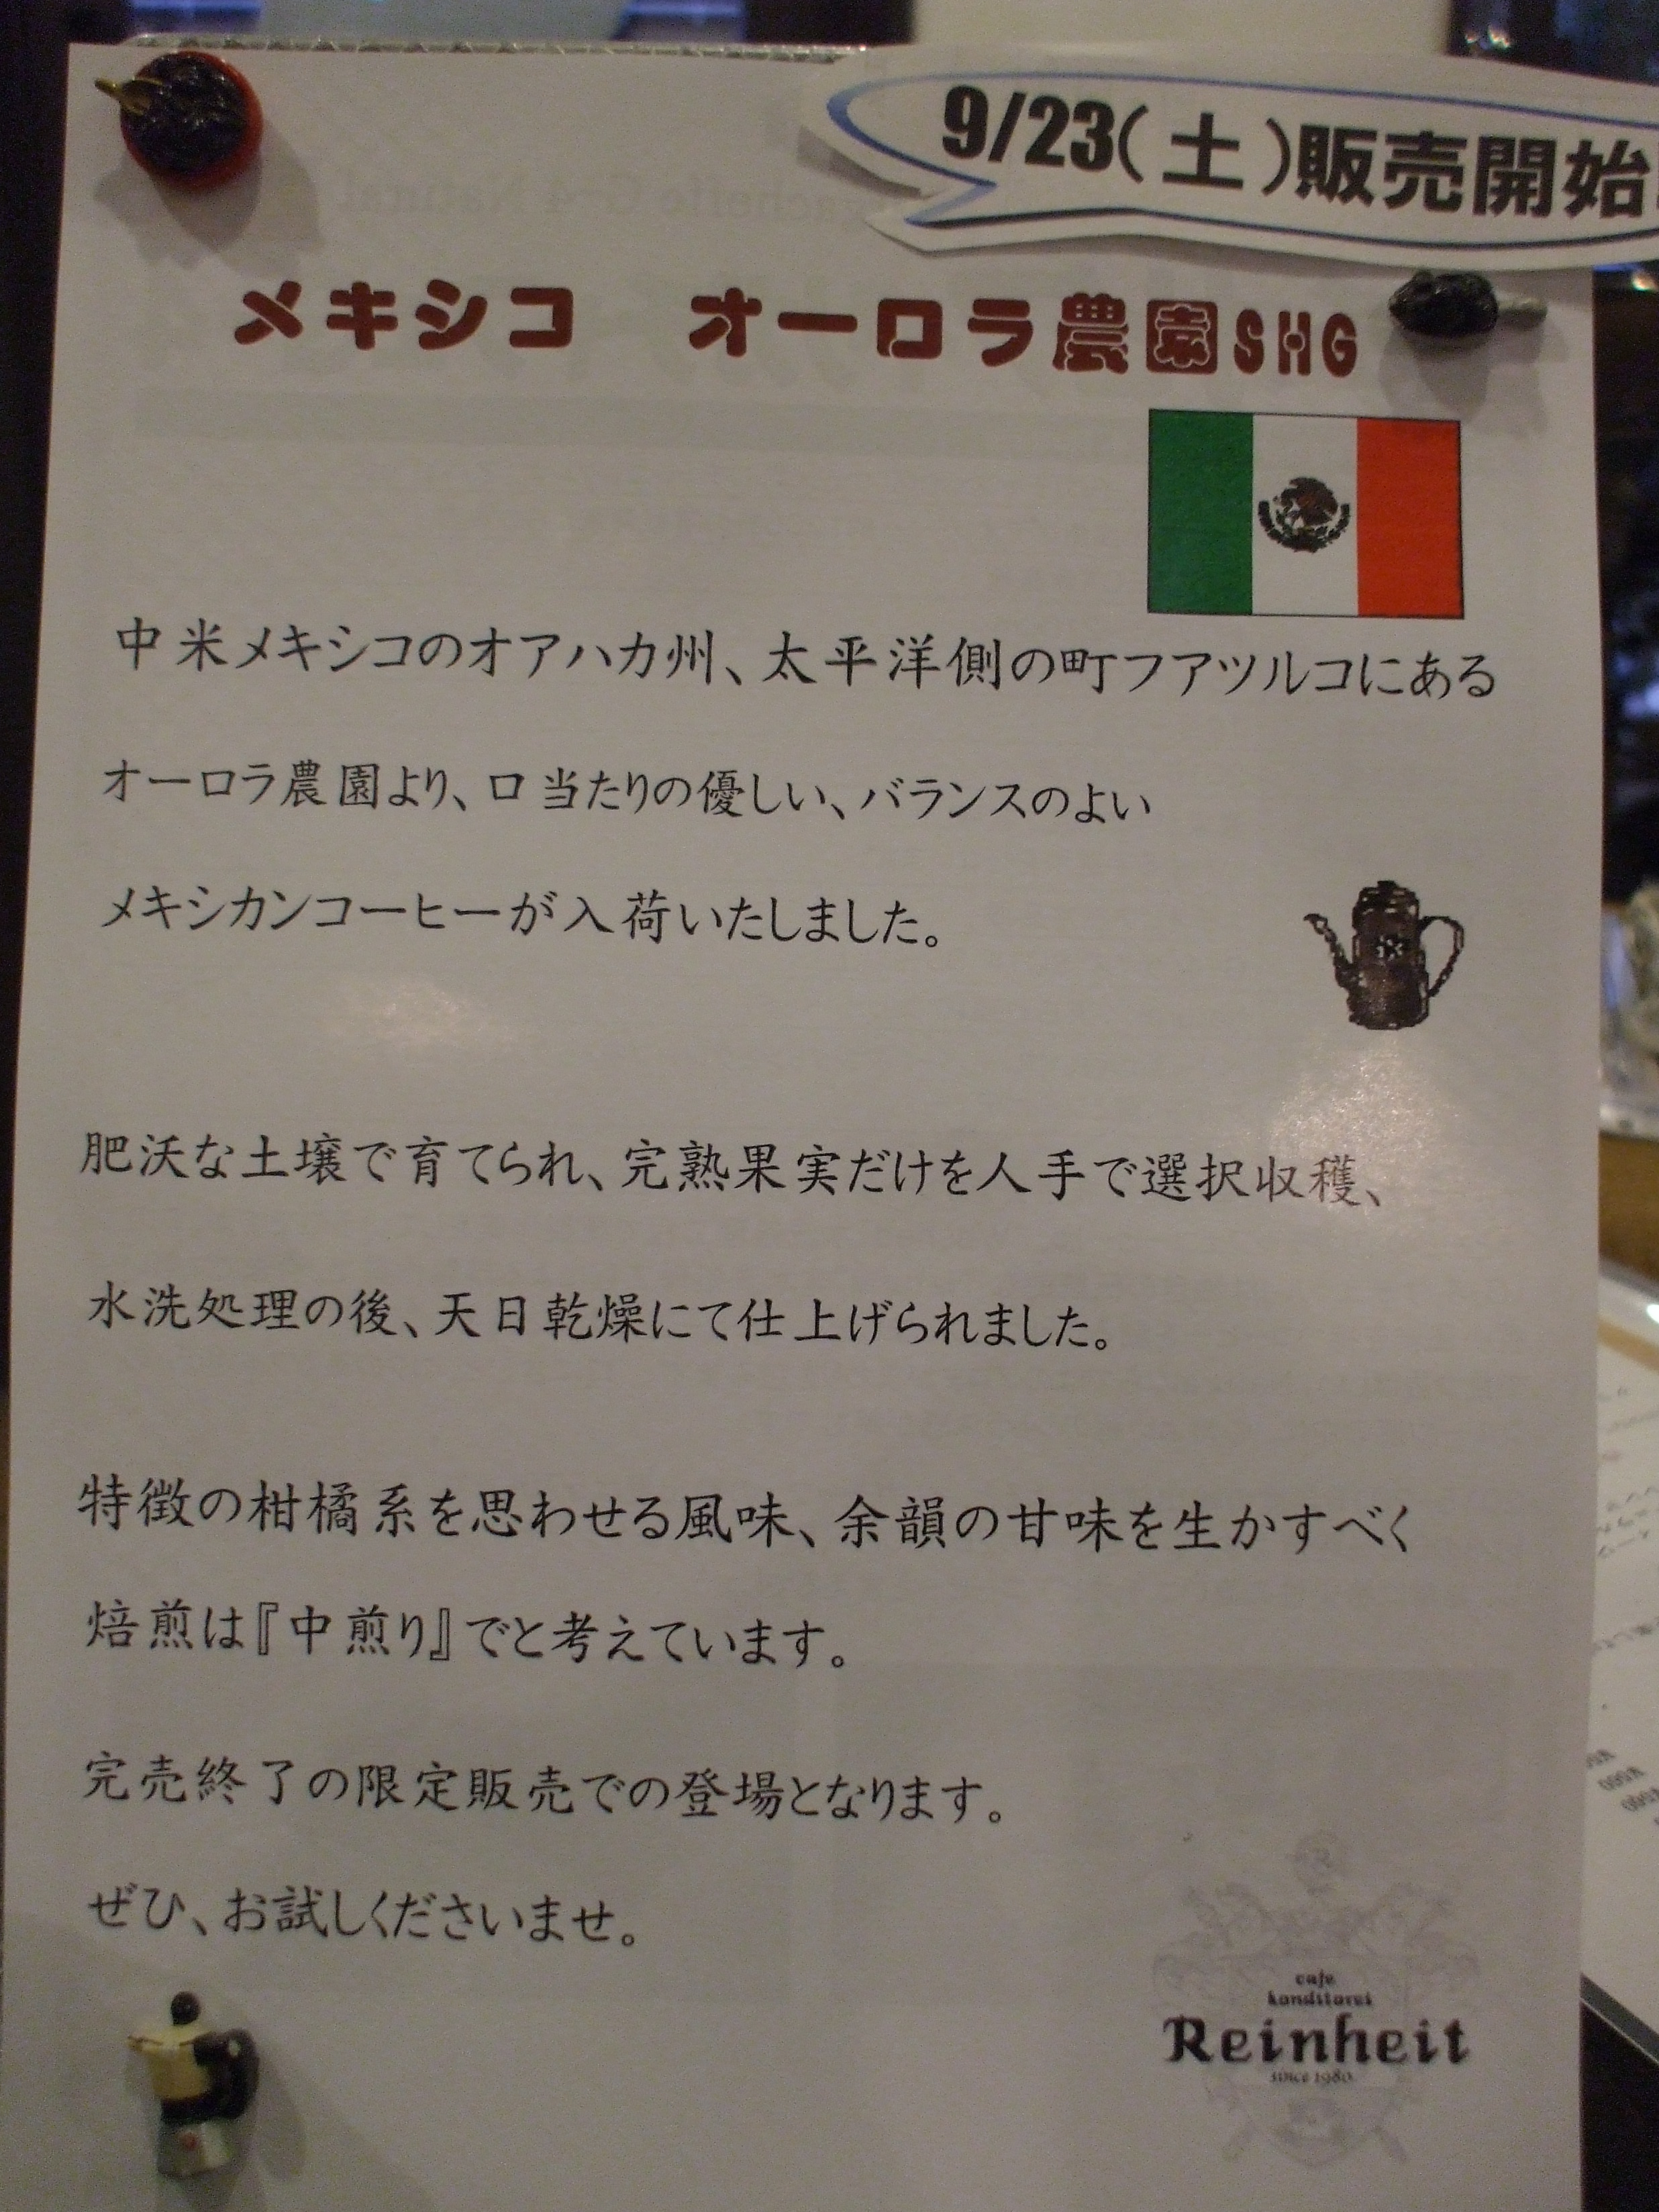 9/23(土)販売開始
メキシコ　オーロラ農園SHG
中米メキシコのオアハカ州、太平洋側の町フアツルコにある
オーロラ農園より、口当たりの優しい、バランスのよい
メキシカンコーヒーが入荷いたしました。
肥沃な土壌で育てられ、完熟果実だけを人手で選択収穫、
水洗処理の後、天日乾燥にて仕上げられました。
特徴の柑橘系を思わせる風味、余韻の甘味を生かすべく
焙煎は『中煎り』でと考えています。
完売終了の限定販売での登場となります。
ぜひ、お試しくださいませ。
cafe
konditorei
Reinheit
since 1980